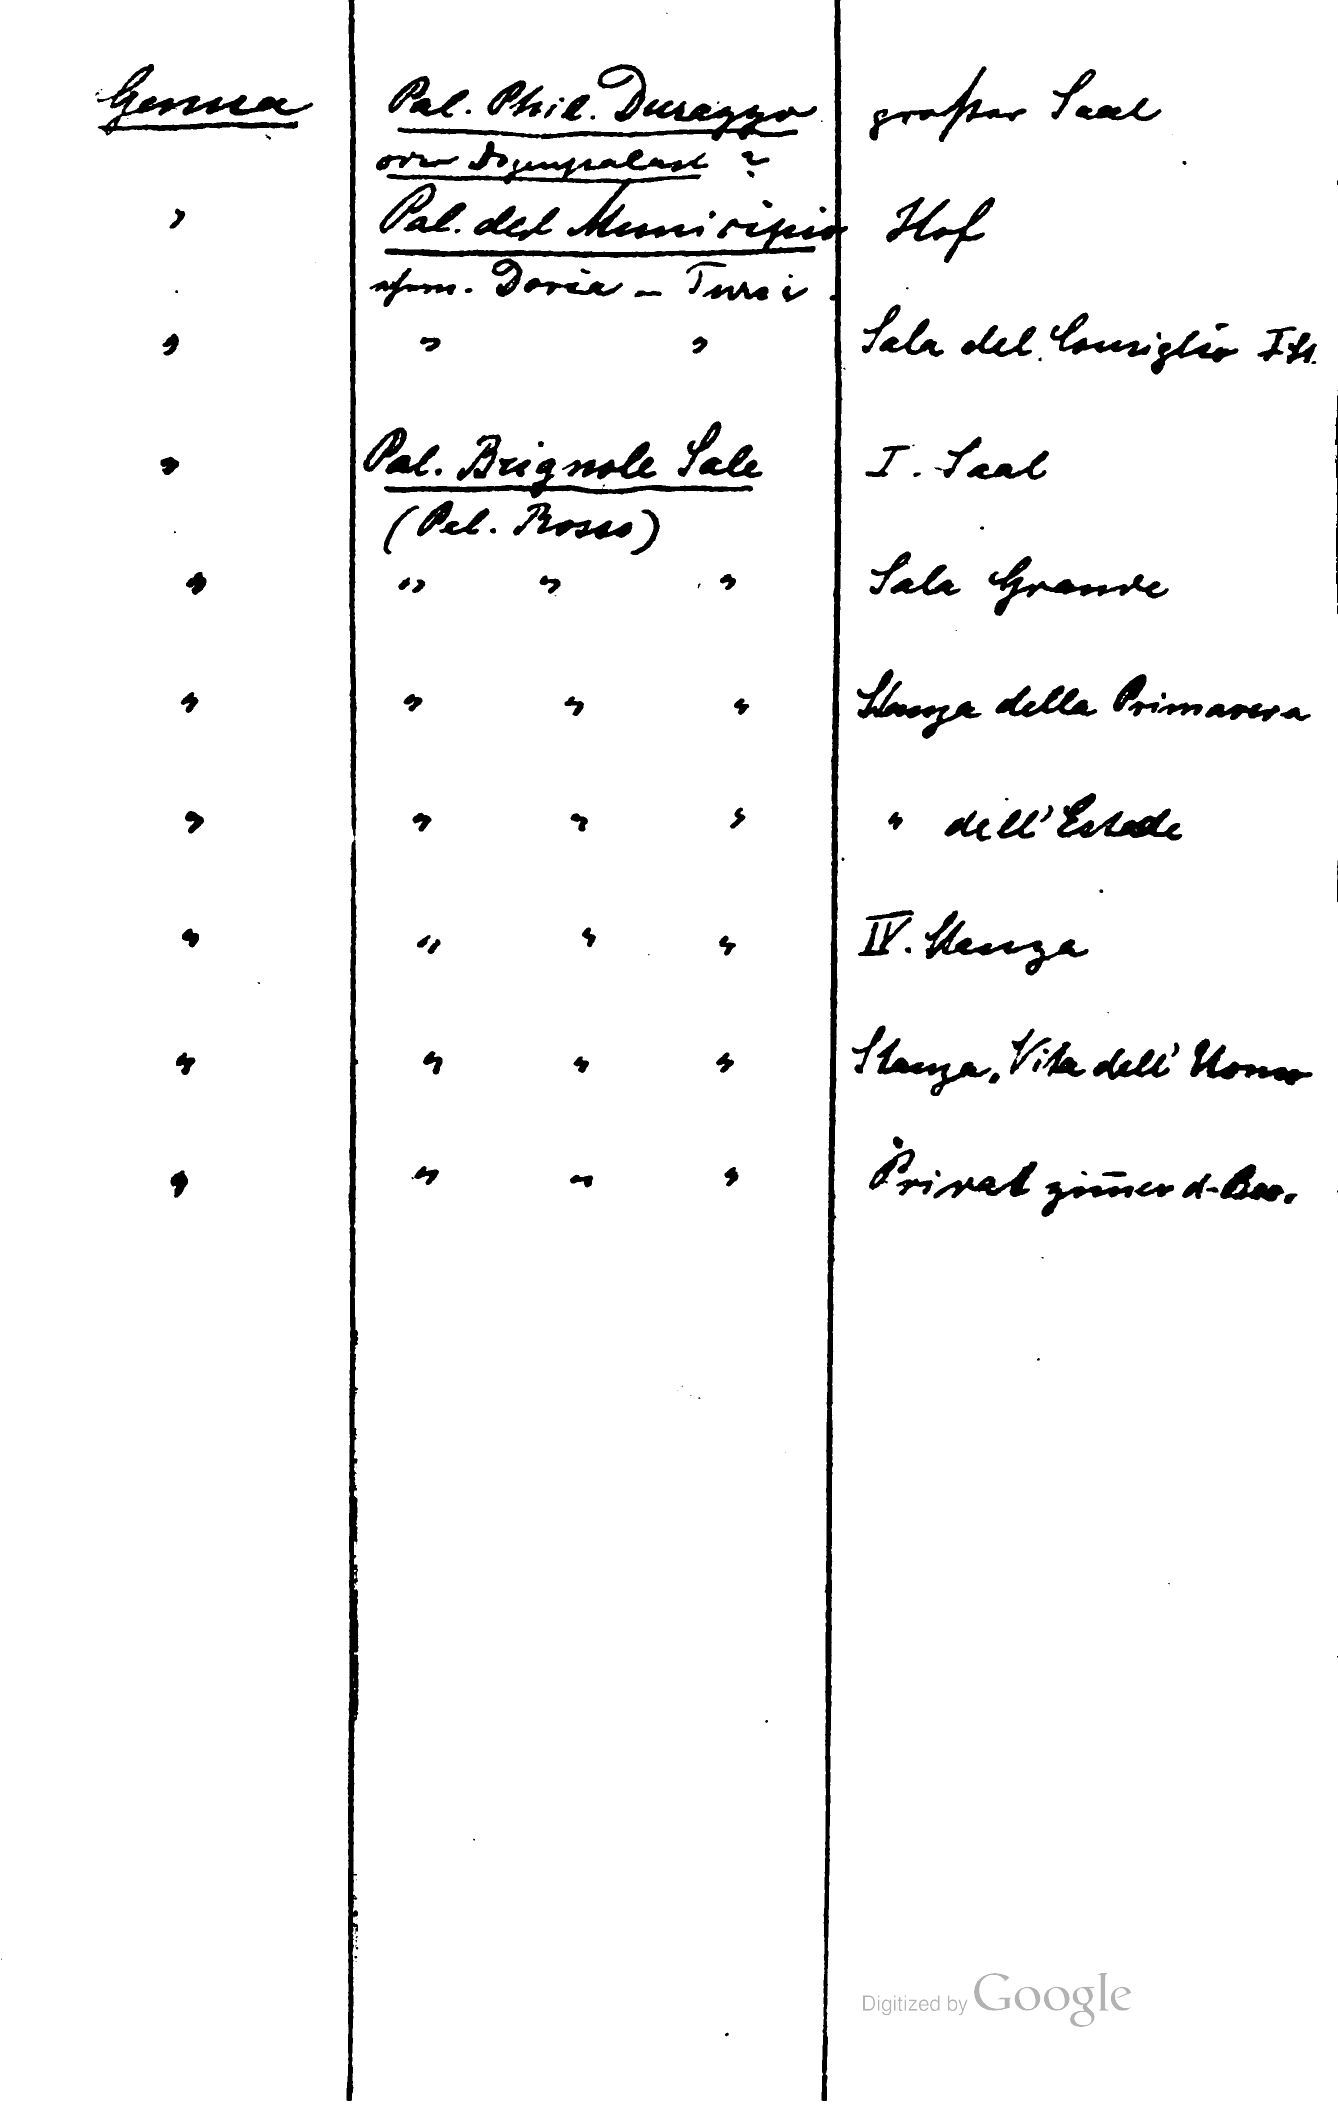 Genua Pal. Phil. Durazzo großer Saal
oder Dogenpalast ?
" Pal. del Municipio Hof
ehem. Doria - Tursi.
" " " Sala del Consiglio I St.
" Pal. Brignole Sale I. Saal
(Pal. Rosso)
" " " " Sala Grande
" " " " Stanza della Primavera
" " " " " dell'Estade
" " " " IV. Stanza
" " " " Stanza, Vita dell' Uomo
" " " " Privat zim̅er d.
Digitized by Google